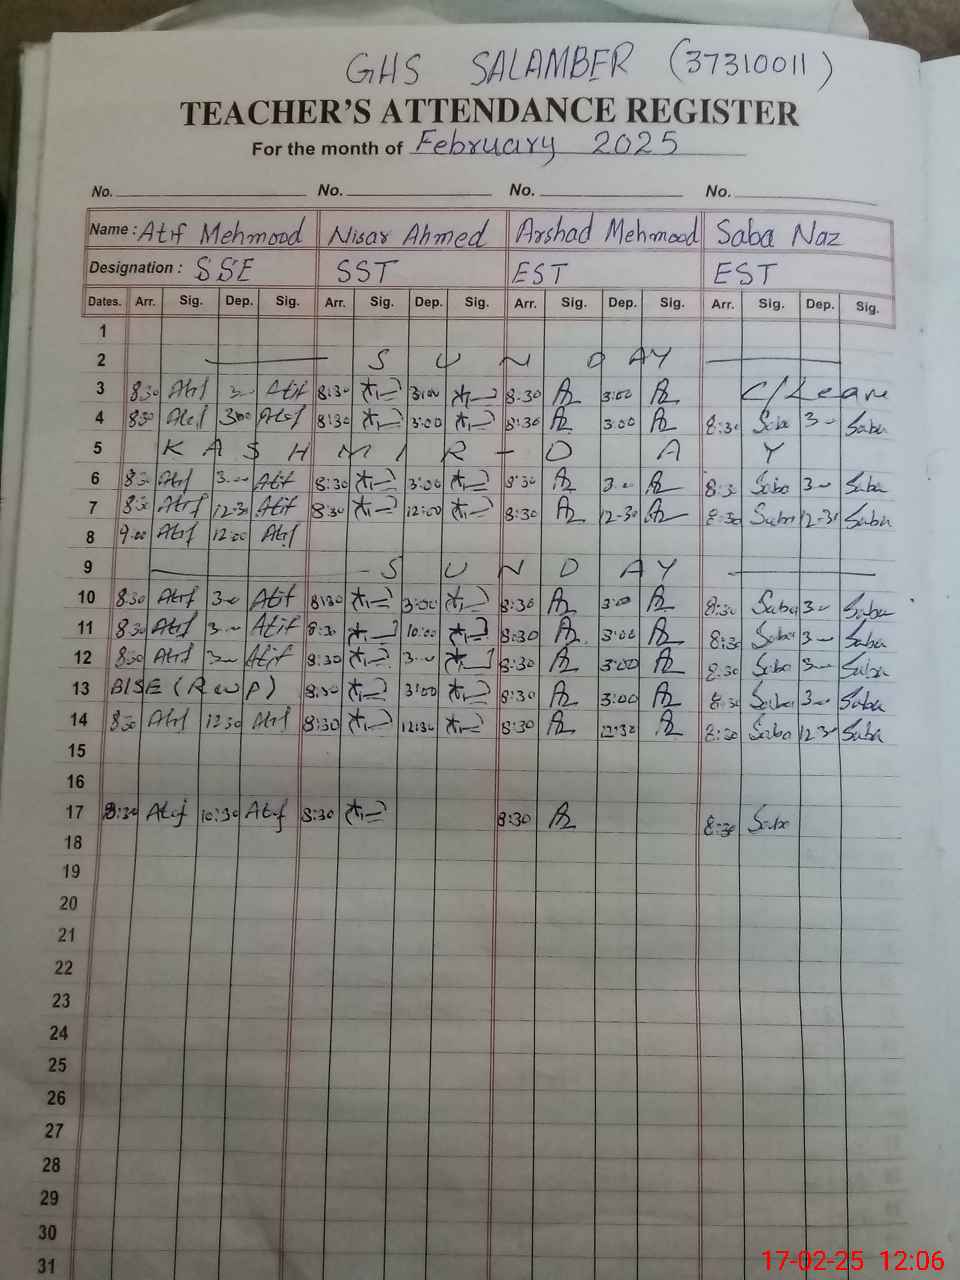 GHS SALAMBER (37310011)
TEACHER'S ATTENDANCE REGISTER
For the month of February 2025
No. No. No. No.
Name : Atif Mehmood Nisar Ahmed Arshad Mehmood Saba Naz
Designation : SSE SST EST EST
Dates. Arr. Sig. Dep. Sig. Arr. Sig. Dep. Sig. Arr. Sig. Dep. Sig. Arr. Sig. Dep. Sig.
1
2 SUNDAY
3 8:30 Atif 3:00 Atif 8:30 3:00 8:30 3:00 C/Leave
4 8:30 Atif 3:00 Atif 8:30 3:00 8:30 3:00 8:30 Saba 3:00 Saba
5 KASHMIR-DAY
6 8:30 Atif 3:00 Atif 8:30 3:00 8:30 3:00 8:30 Saba 3:00 Saba
7 8:30 Atif 12:30 Atif 8:30 12:00 8:30 12:30 8:30 Saba 12:30 Saba
8 9:00 Atif 12:00 Atif
9 SUNDAY
10 8:30 Atif 3:00 Atif 8:30 3:00 8:30 3:00 8:30 Saba 3:00 Saba
11 8:30 Atif 3:00 Atif 8:30 10:00 8:30 3:00 8:30 Saba 3:00 Saba
12 8:30 Atif 3:00 Atif 8:30 3:00 8:30 3:00 8:30 Saba 3:00 Saba
13 BISE (Rwp) 8:30 3:00 8:30 3:00 8:30 Saba 3:00 Saba
14 8:30 Atif 12:30 Atif 8:30 12:30 8:30 12:30 8:30 Saba 12:30 Saba
15
16
17 8:30 Atif 10:30 Atif 8:30 8:30 8:30 Saba
18
19
20
21
22
23
24
25
26
27
28
29
30
31
17-02-25 12:06